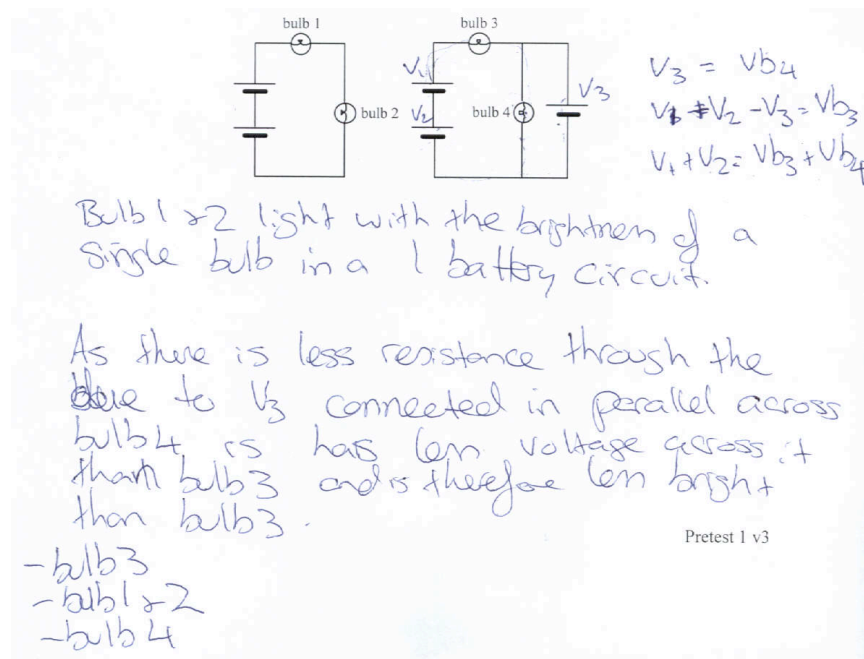 bulb 1
bulb 2
bulb 3
V1
V2
bulb 4
V3
V3 = Vb4
V1 + V2 - V3 = Vb3
V1 + V2 = Vb3 + Vb4
Bulb 1 & 2 light with the brightness of a
single bulb in a 1 battery circuit.
As there is less resistance through the
due to V3 connected in parallel across
bulb 4 is has less voltage across it
than bulb 3 and is therefore less bright
than bulb 3.
Pretest 1 v3
- bulb 3
- bulb 1 & 2
- bulb 4